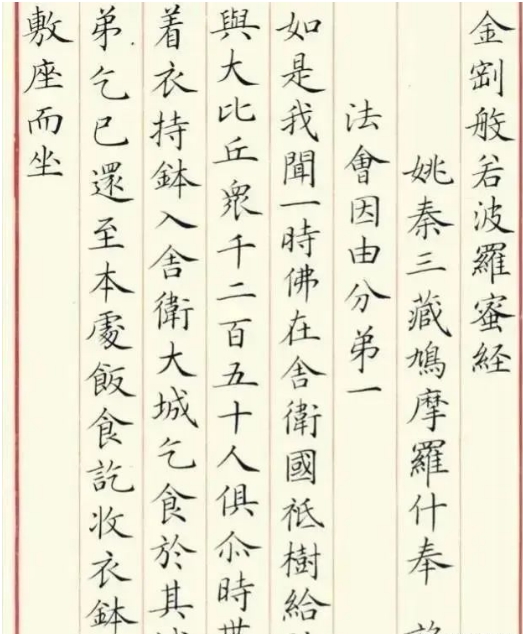 金剛般若波羅蜜経
姚秦三藏鳩摩羅什奉
法會因由分弟一
如是我聞一時佛在舎衛國祇樹給
與大比丘衆千二百五十人俱尒時世
着衣持鉢入舎衛大城乞食於其城
弟乞已還至本處飯食訖收衣鉢
敷座而坐